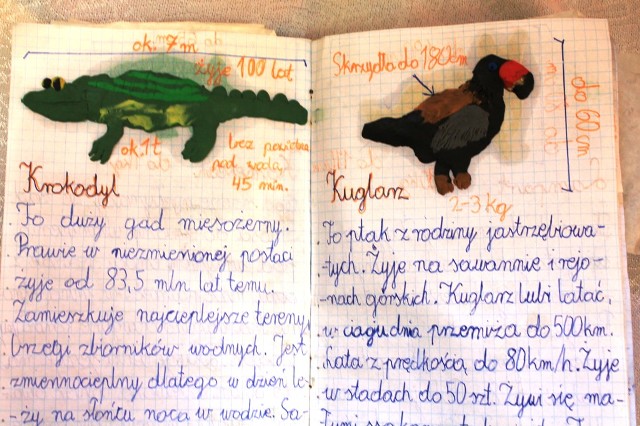 ok. 7 m
żyje 100 lat
ok. 1 t
bez powietrza
pod wodą
45 min.
Krokodyl
To duży gad mięsożerny.
Prawie w niezmienionej postaci
żyje od 83,5 mln lat temu.
Zamieszkuje najcieplejsze tereny,
brzegi zbiorników wodnych. Jest
zmiennocieplny dlatego w dzień le-
-ży na słońcu nocą w wodzie. Sa-
Skrzydła do 180cm
do 60 cm
Kuglarz
2-3 kg
To ptak z rodziny jastrzębiowa-
-tych. Żyje na sawannie i rejo-
-nach górskich. Kuglarz lubi latać,
w ciągu dnia przemierza do 500km.
Lata z prędkością do 80 km/h. Żyje
w stadach do 50 szt. Żywi się ma-